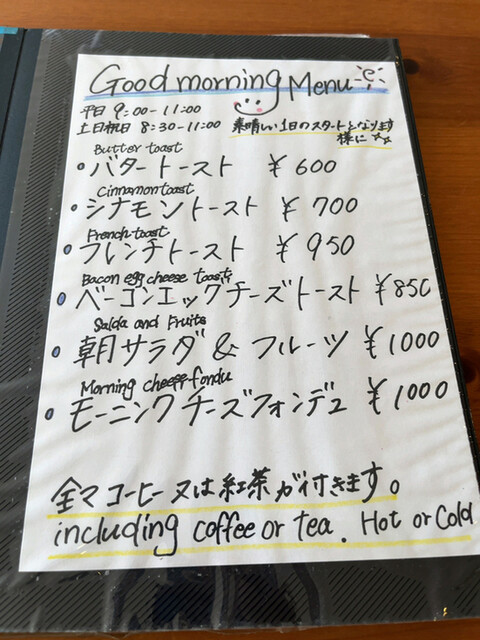 Good morning Menu
平日 9:00-11:00
土日祝日 8:30-11:00
素晴しい1日のスタートとなります
様に☆☆
Butter toast
・バタートースト ¥600
Cinnamon toast
・シナモントースト ¥700
French toast
・フレンチトースト ¥950
Bacon egg cheese toast
・ベーコンエッグチーズトースト ¥850
Salda and Fruits
・朝サラダ & フルーツ ¥1000
Morning cheese fondu
・モーニングチーズフォンデュ ¥1000
全てコーヒー又は紅茶が付きます。
including coffee or tea. Hot or Cold